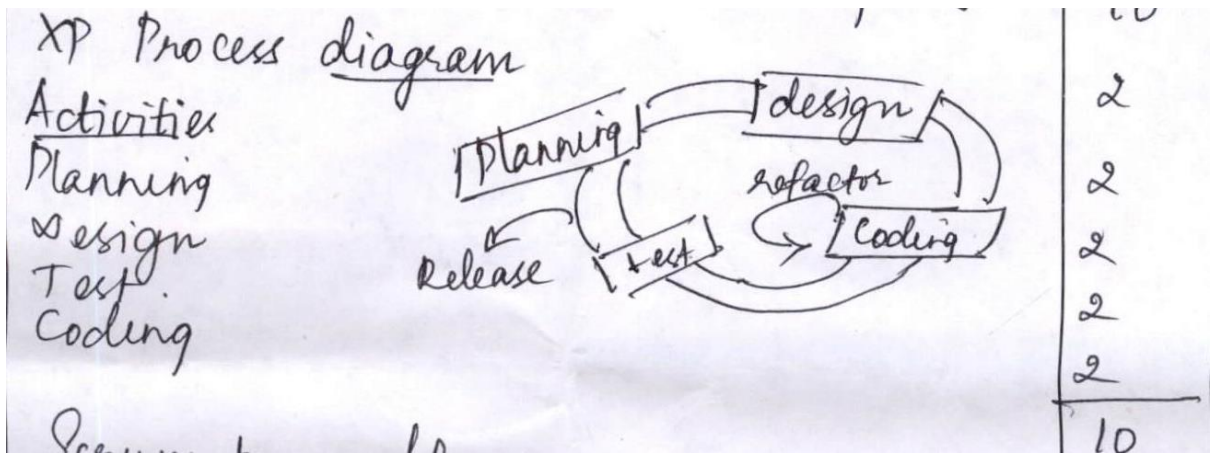 XP Process diagram
Activities
Planning
Design
Test
Coding
Planning
design
refactor
Coding
test
Release
2
2
2
2
2
10